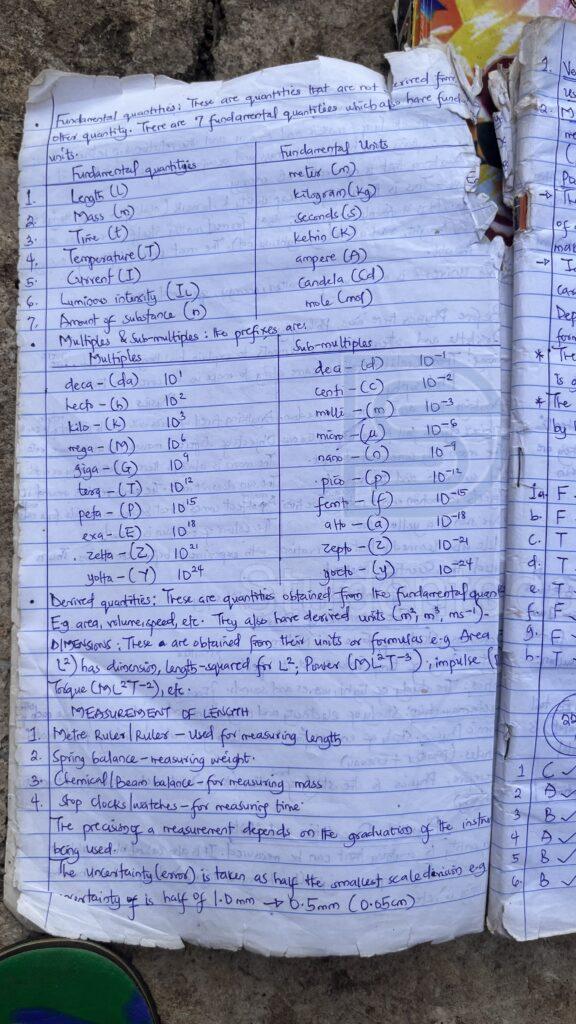 • Fundamental quantities: These are quantities that are not derived from
other quantity. There are 7 fundamental quantities which also have fund
units.
Fundamental quantities Fundamental Units
1. Length (L) meter (m)
2. Mass (m) kilogram (kg)
3. Time (t) Seconds (s)
4. Temperature (T) kelvin (K)
5. Current (I) ampere (A)
6. Luminous intensity (IL) Candela (Cd)
7. Amount of substance (n) mole (mol)
• Multiples & Sub-multiples: the prefixes are:
Multiples Sub-multiples
deca - (da) 10¹ deci - (d) 10⁻¹
hecto - (h) 10² centi - (c) 10⁻²
kilo - (K) 10³ milli - (m) 10⁻³
mega - (M) 10⁶ micro - (μ) 10⁻⁶
giga - (G) 10⁹ nano - (n) 10⁻⁹
tera - (T) 10¹² pico - (p) 10⁻¹²
peta - (P) 10¹⁵ femto - (f) 10⁻¹⁵
exa - (E) 10¹⁸ atto - (a) 10⁻¹⁸
zetta - (Z) 10²¹ zepto - (z) 10⁻²¹
yotta - (Y) 10²⁴ yocto - (y) 10⁻²⁴
• Derived quantities: These are quantities obtained from the fundamental quant
Eg area, volume, speed, etc. They also have derived units (m², m³, ms⁻¹).
DIMENSIONS: These are obtained from their units or formulas e.g Area
L²) has dimension, length-squared for L², Power (ML²T⁻³), impulse
Torque (ML²T⁻²), etc.
MEASUREMENT OF LENGTH
1. Metre Ruler/Ruler - Used for measuring length
2. Spring balance - measuring weight.
3. Chemical/Beam balance - for measuring mass
4. Stop clocks/watches - for measuring time.
The precision of a measurement depends on the graduation of the instru
being used.
The uncertainty (error) is taken as half the smallest scale division e.g
certainty of is half of 1.0mm → 0.5mm (0.05cm)
1.
2. M
→ Th
of
→
*The
Is
*The
by
Ia. F -
b. F
c. T
d. T -
e. T
f. F -
g. F -
h. T
1 C ✓
2 A ✓
3 B ✓
4 A ✓
5 B ✓
6. B ✓